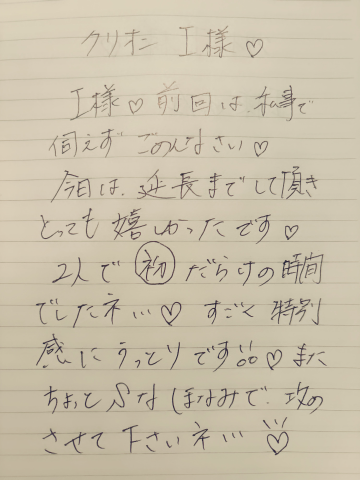 クリオネ I様♡
I様♡前回は、私事で
伺えず ごめんなさい♡
今日は、延長までして頂き
とっても 嬉しかったです♡
2人で 初 だらけの時間
でしたネ…♡ すごく 特別
感に うっとりです♡ また
ちょっと Sな ほなみで、攻め
させて 下さいネ…♡